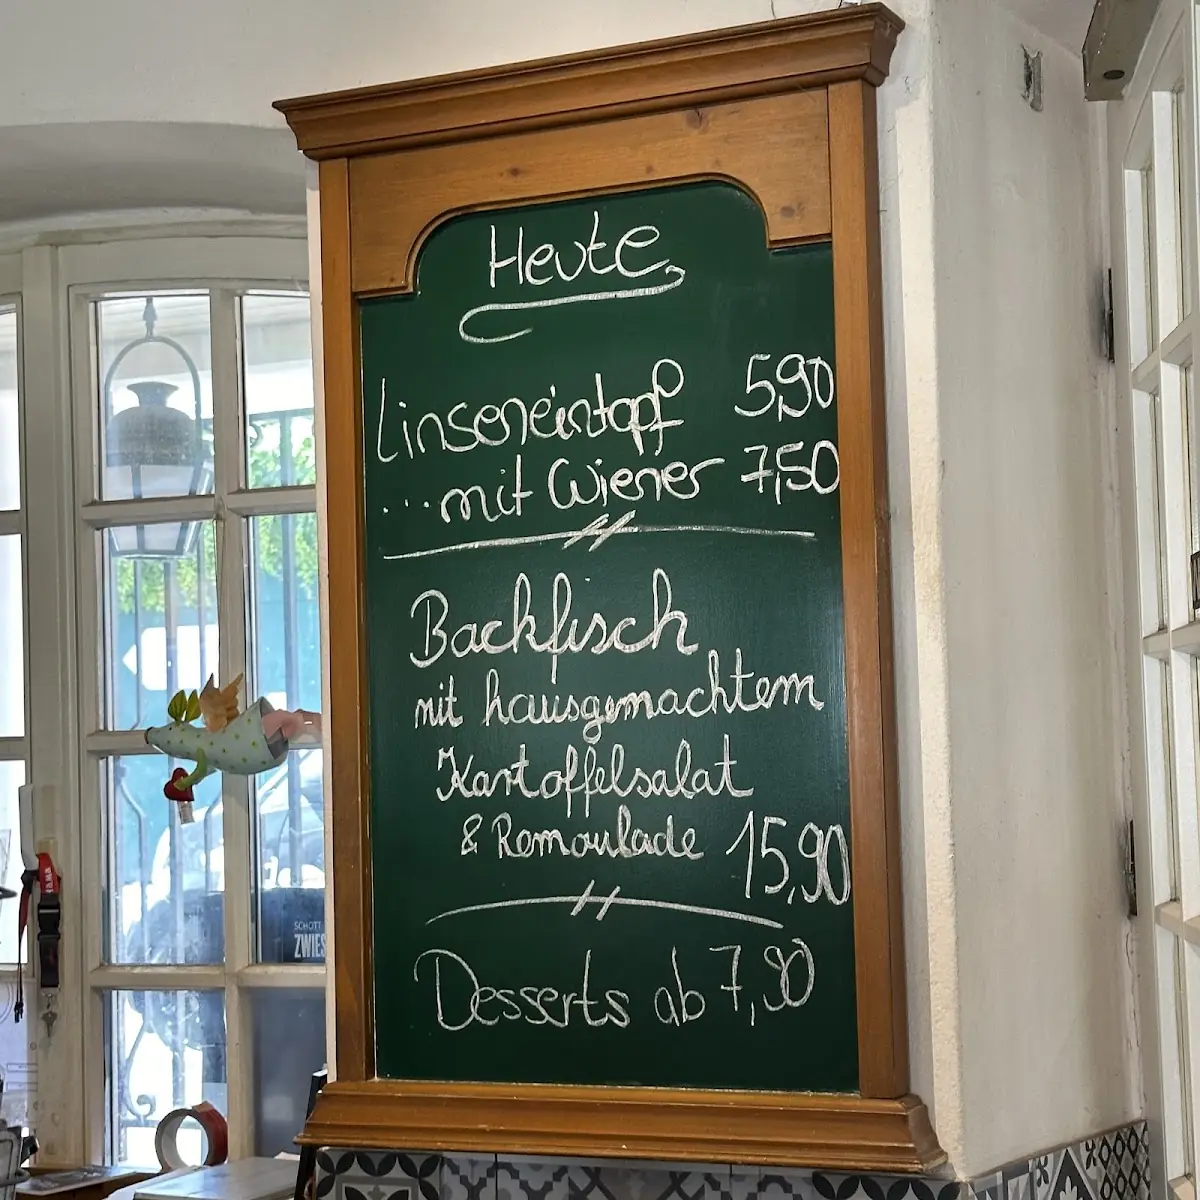 Heute
Linseneintopf 5,90
...mit Wiener 7,50
Backfisch
mit hausgemachtem
Kartoffelsalat
& Remoulade 15,90
Desserts ab 7,90
SCHOTT
ZWIES